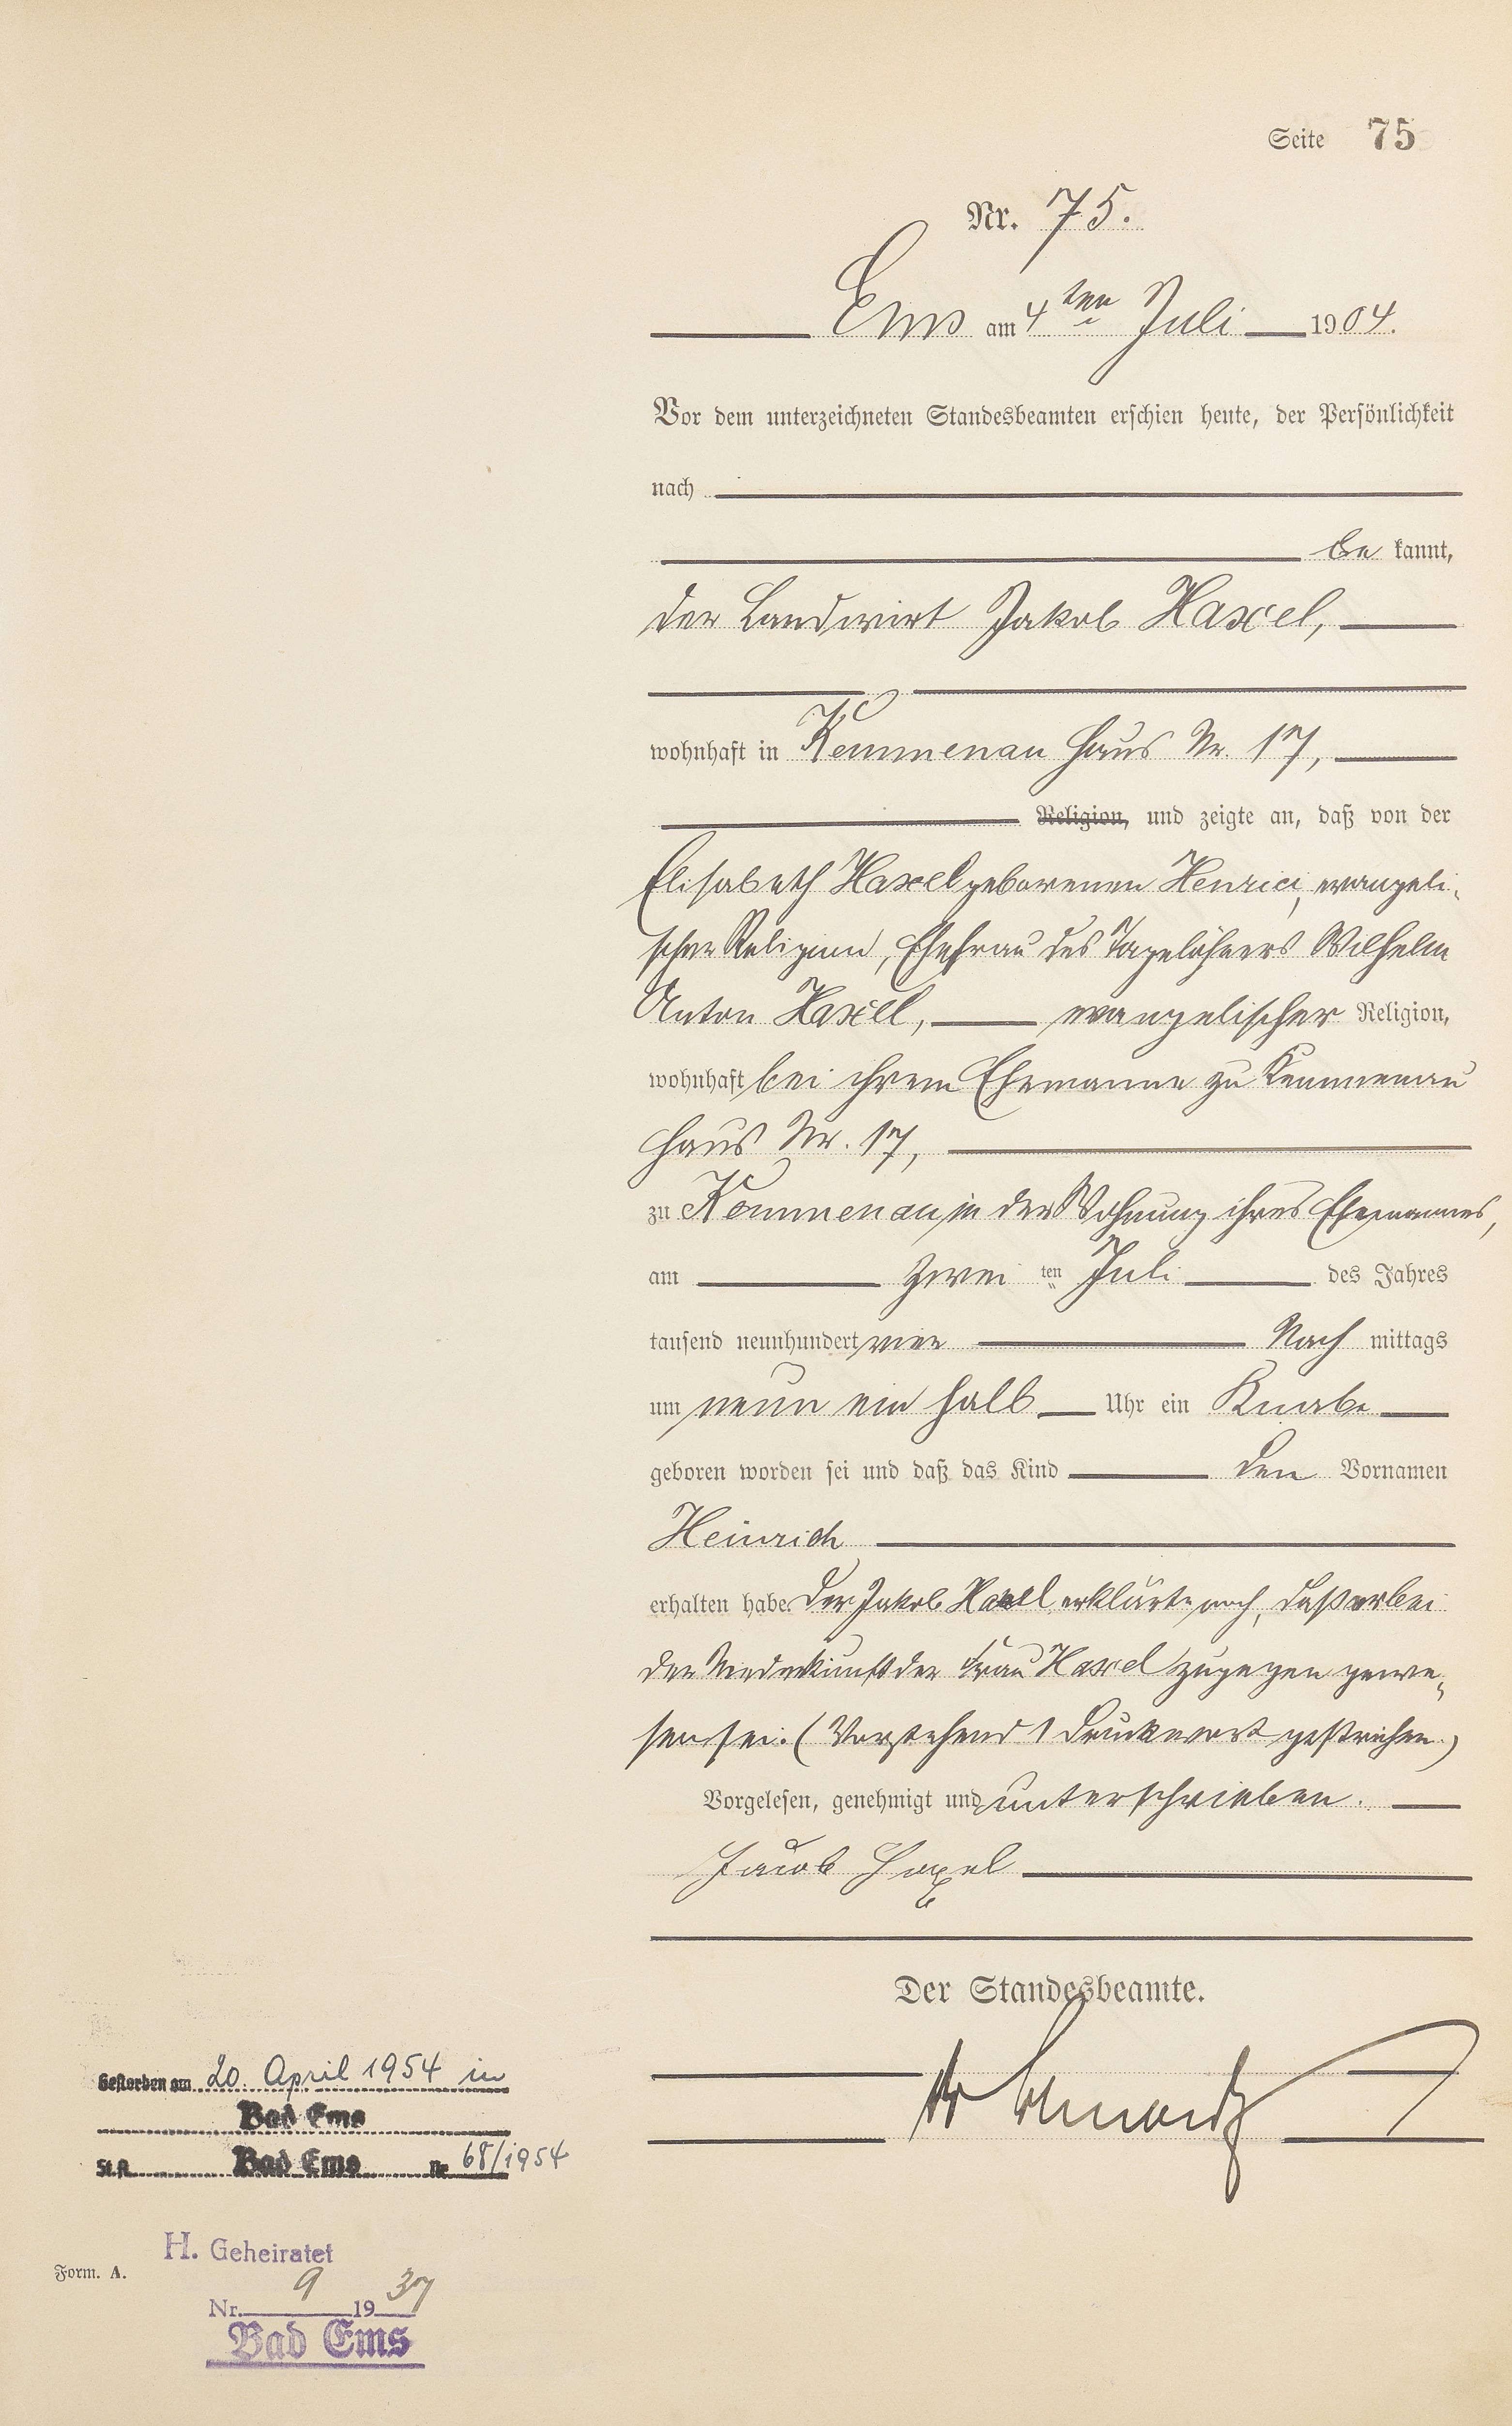 Seite 75
Nr. 75.
Ems am 4ten Juli 1904.
Vor dem unterzeichneten Standesbeamten erschien heute, der Persönlichkeit
nach
be kannt,
der Landwirt Jakob Haxel,
wohnhaft in Kemmenau Haus Nr. 17,
Religion, und zeigte an, daß von der
Elisabeth Haxel geborenen Henrici, evangeli-
scher Religion, Ehefrau des Tagelöhners Wilhelm
Anton Haxel, evangelischer Religion,
wohnhaft bei ihrem Ehemanne zu Kemmenau
Haus Nr. 17,
zu Kemmenau in der Wohnung ihres Ehemannes,
am zwei ten Juli des Jahres
tausend neunhundert vier Nach mittags
um neun ein halb Uhr ein Knabe
geboren worden sei und daß das Kind den Vornamen
Heinrich
erhalten habe. Der Jakob Haxel erklärte noch, daß er bei
der Niederkunft der Frau Haxel zugegen gewe-
sen sei. (Vorstehend 1 Druckwort gestrichen.)
Vorgelesen, genehmigt und unterschrieben.
Jacob Haxel
Der Standesbeamte.
Gestorben am 20. April 1954 in
Bad Ems
St.A. Bad Ems Nr. 68/1954
H. Geheiratet
Form. A.
Nr. 9 1937
Bad Ems